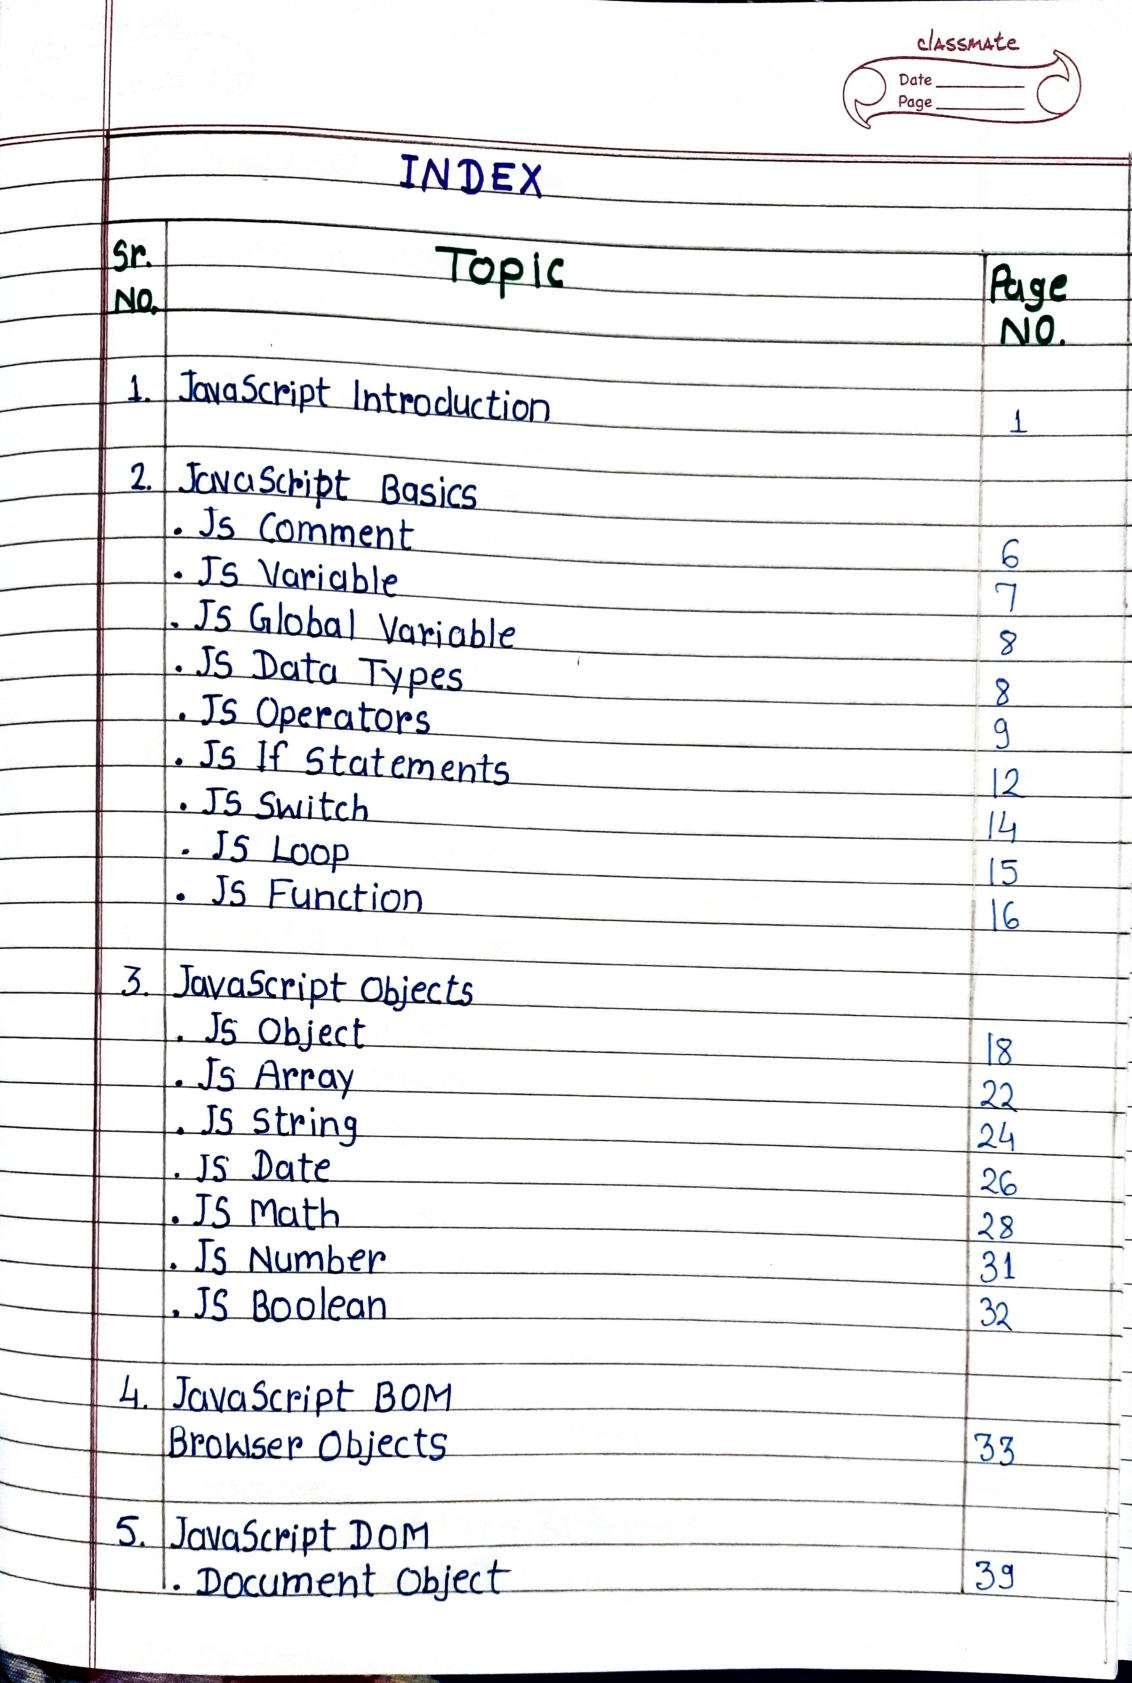 classmate
Date
Page
INDEX
Sr. No. Topic Page No.
1. JavaScript Introduction 1
2. JavaScript Basics
. Js Comment 6
. Js Variable 7
. Js Global Variable 8
. JS Data Types 8
. JS Operators 9
. Js If Statements 12
. JS Switch 14
. JS Loop 15
. JS Function 16
3. JavaScript Objects
. Js Object 18
. Js Array 22
. JS String 24
. JS Date 26
. JS Math 28
. Js Number 31
. JS Boolean 32
4. JavaScript BOM
Browser Objects 33
5. JavaScript DOM
. Document Object 39